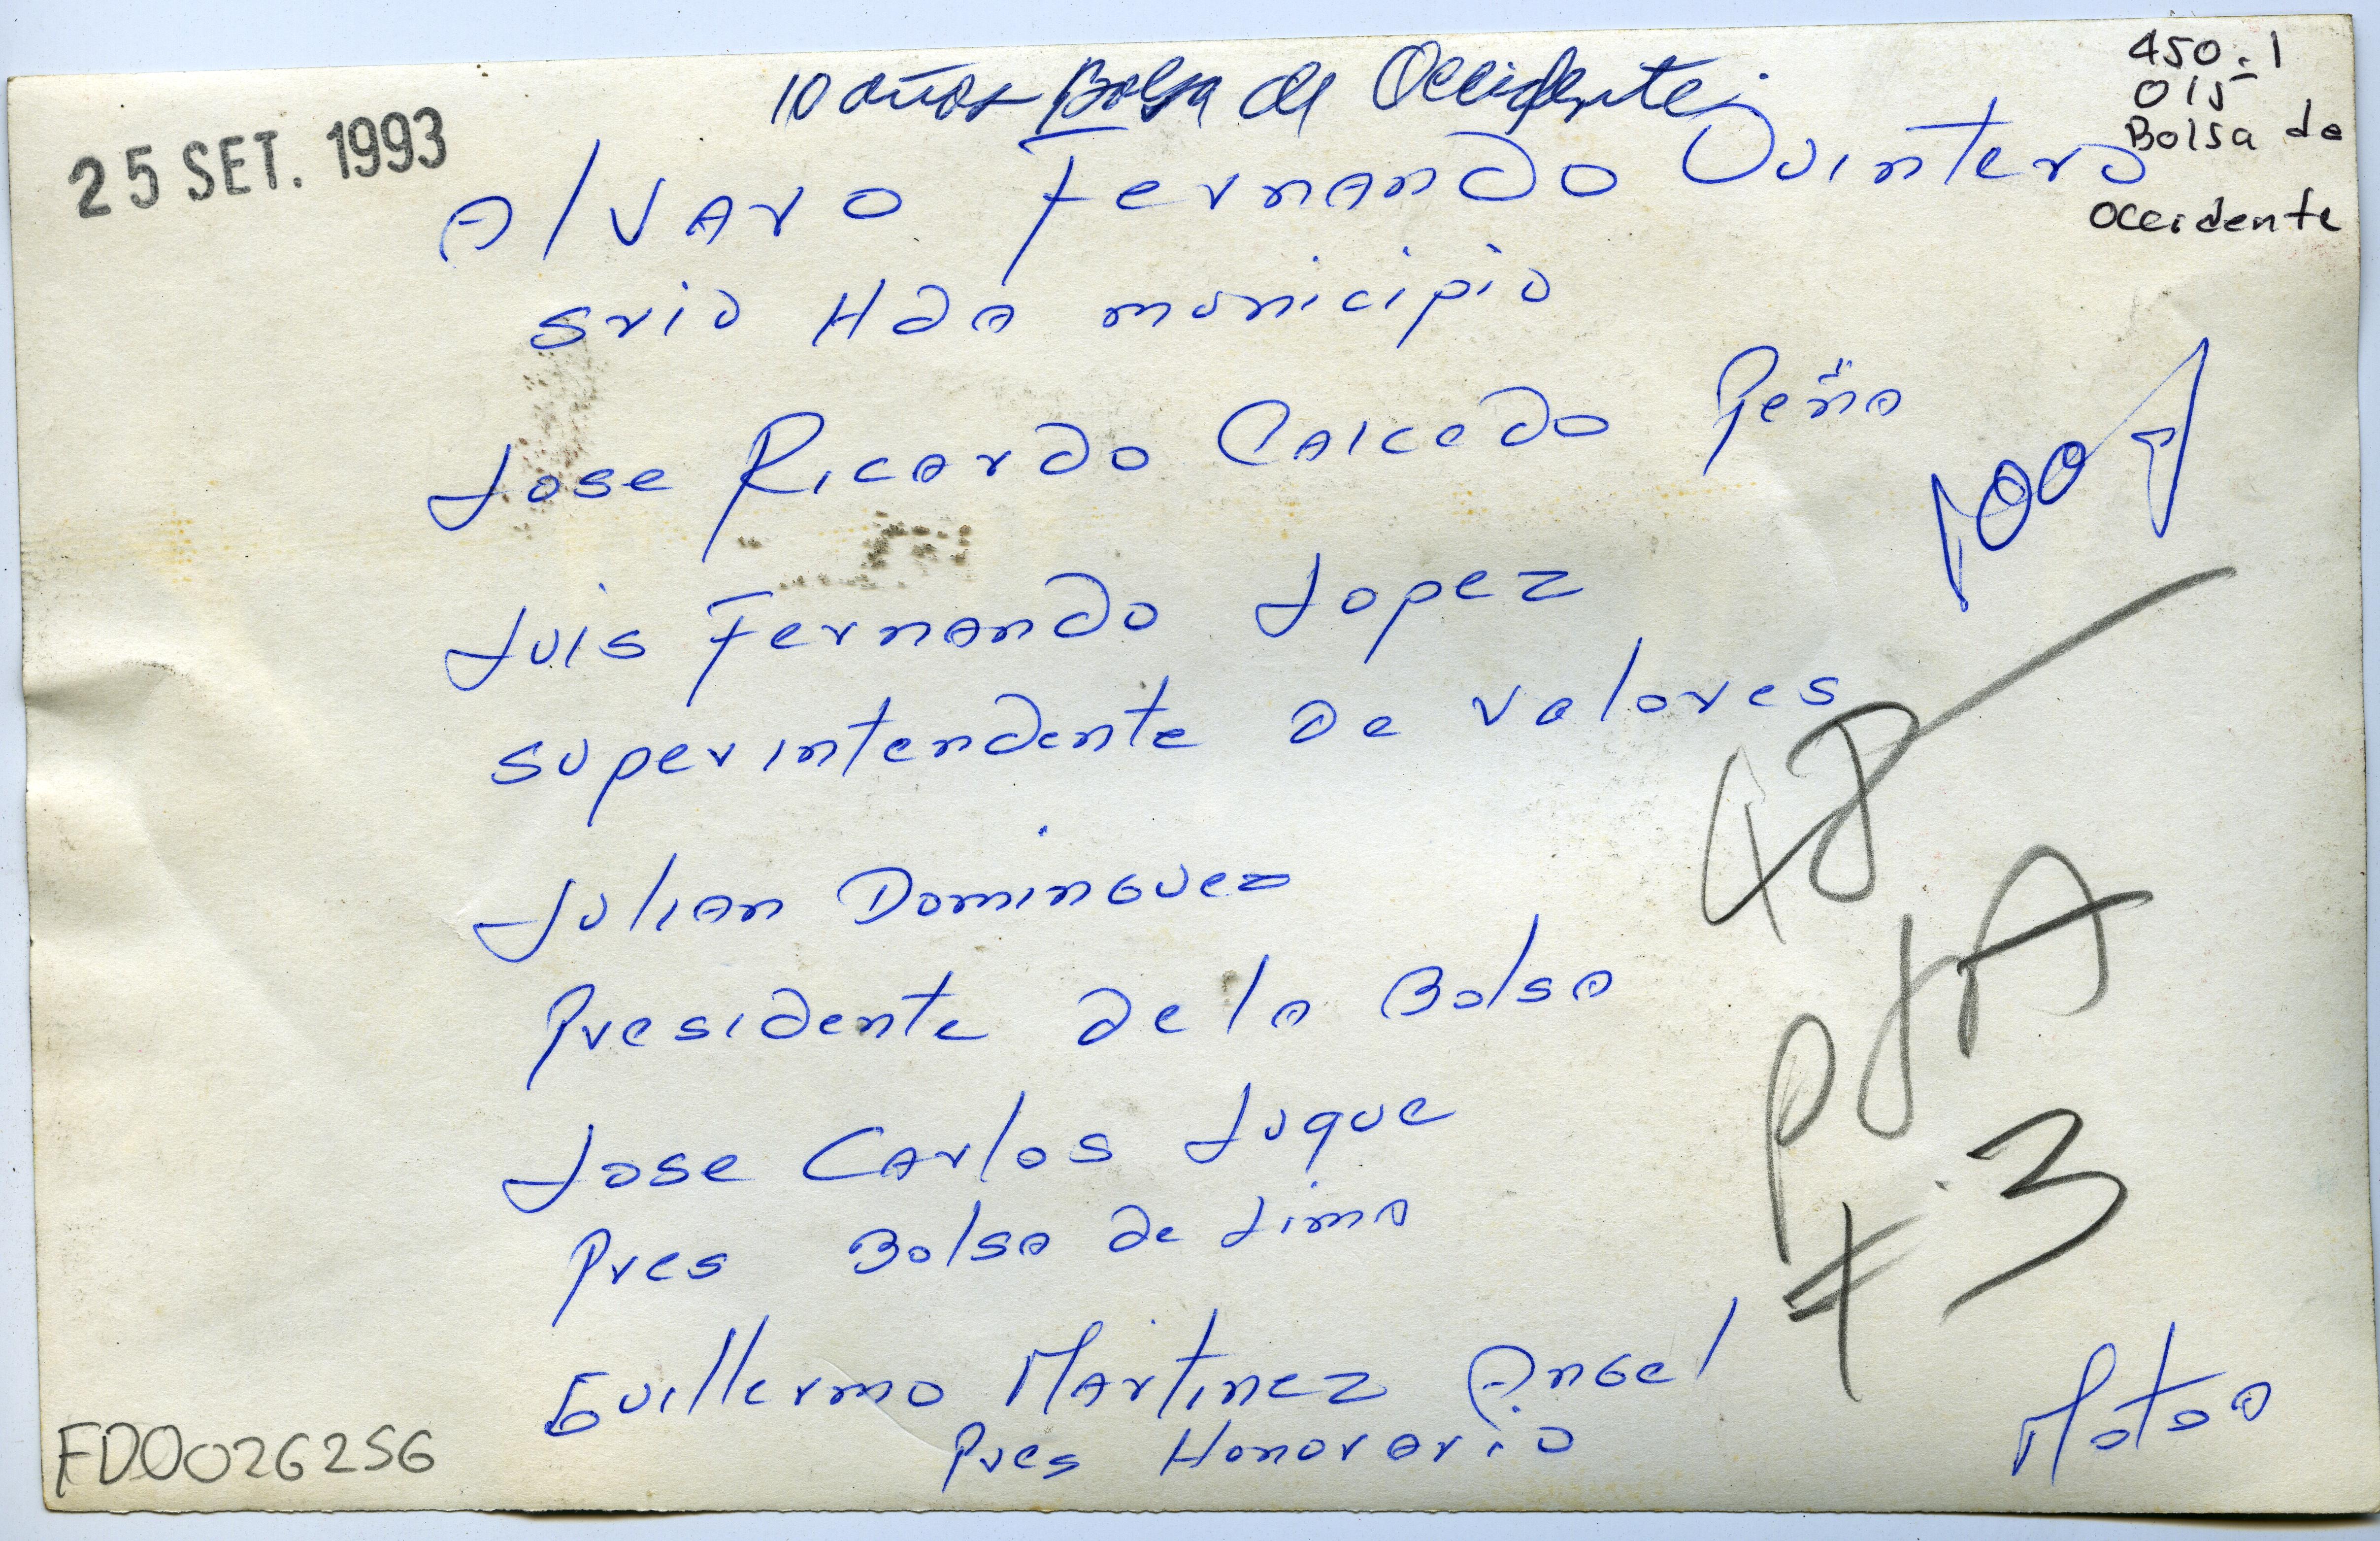 10 años Bolsa de Occidente
450-1
015
Bolsa de
Occidente
25 SET. 1993
Alvaro Fernando Quintero
Srio Hda municipio
Jose Ricardo Caicedo Peña
100%
Luis Fernando Lopez
superintendente De valores
Julian Dominguez
Presidente de la Bolsa
Jose Carlos Luque
Pres Bolsa de Lima
Guillermo Martinez Angel
Pres Honorario
3
FD0026256